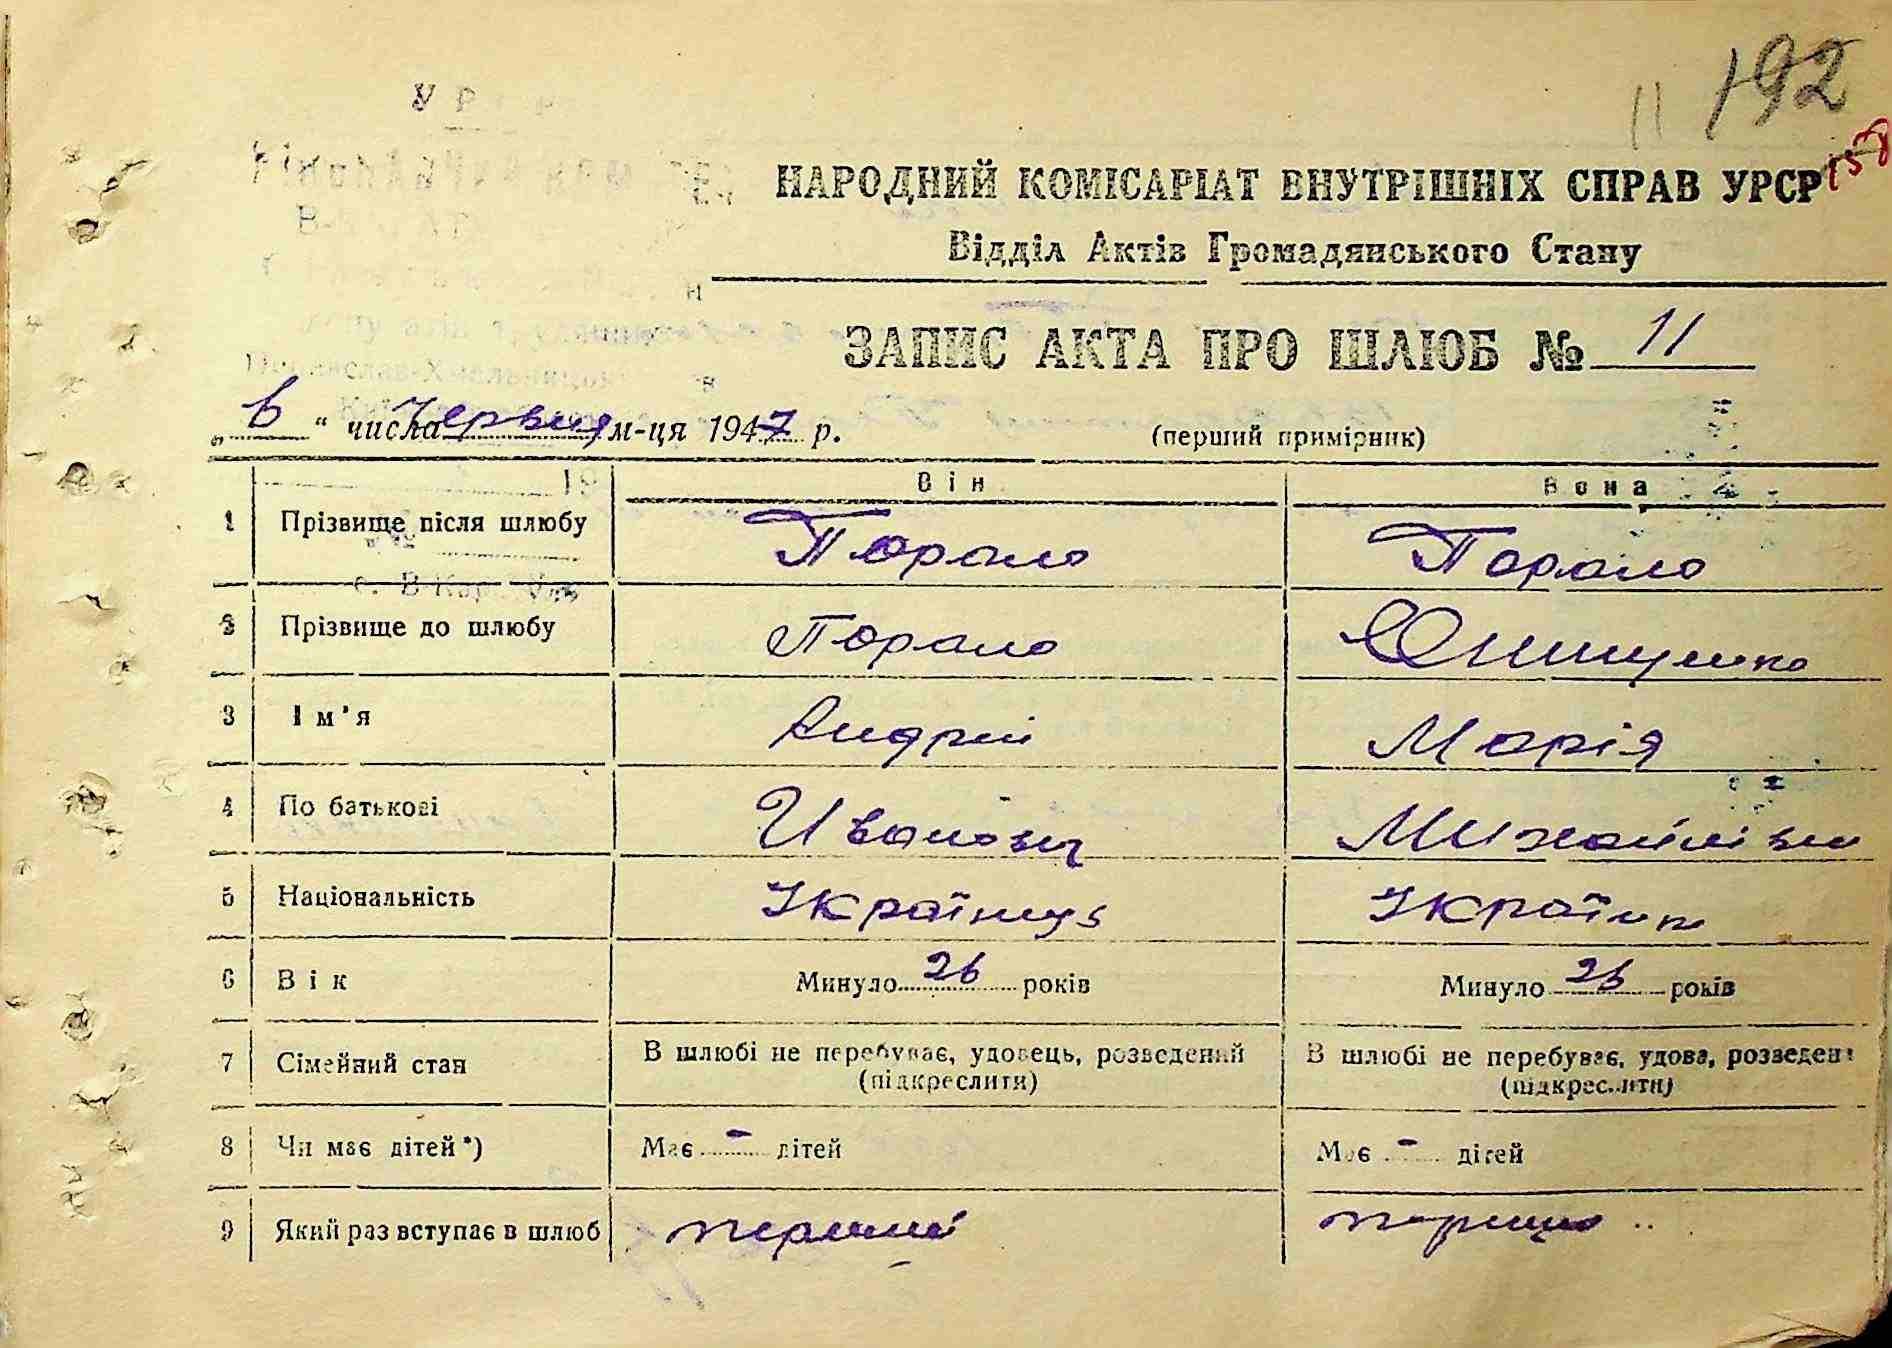 11 192
158
НАРОДНИЙ КОМІСАРІАТ ВНУТРІШНІХ СПРАВ УРСР
Відділ Актів Громадянського Стану
ЗАПИС АКТА ПРО ШЛЮБ № 11
„6“ числа Червня м-ця 1947 р.
(перший примірник)
Він Вона
1 Прізвище після шлюбу Порало Порало
2 Прізвище до шлюбу Порало
3 Ім'я Андрій Марія
4 По батькові Иванович Михайлівна
5 Національність Українець Українка
6 Вік Минуло 26 років Минуло 26 років
7 Сімейний стан В шлюбі не перебуває, удовець, розведений (підкреслити) В шлюбі не перебуває, удова, розведена (підкреслити)
8 Чи має дітей*) Має - дітей Має - дітей
9 Який раз вступає в шлюб перший перший